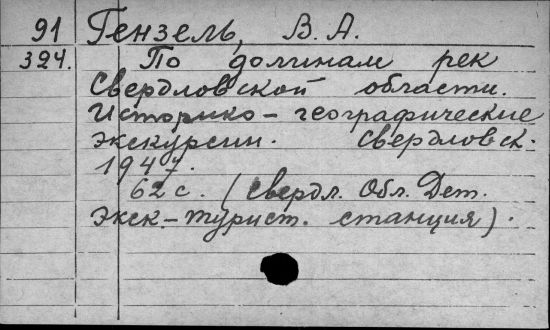 91 Гензель, В. А.
324. По долинам рек
Свердловской области.
Историко-географические
экскурсии. Свердловск.
1947.
62 с. (Свердл. Обл. Дет.
экск.-турист. станция).